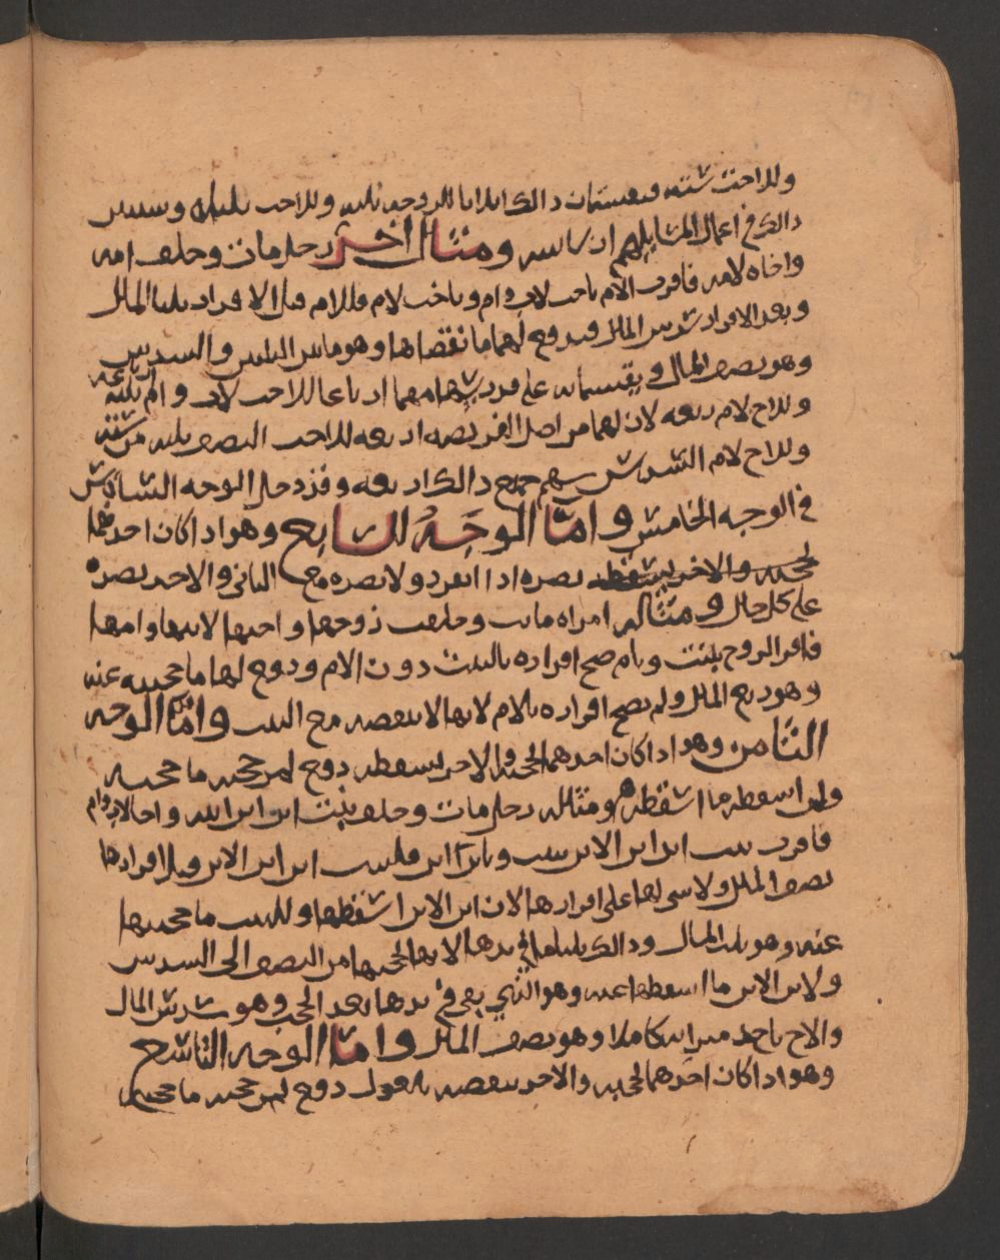 وللاخت ستة فيقتسمان ذالك اثلاثا للزوجة ثلثه وللاخت ثلثاه وستبين
ذالك في اعمال المسايل لهم ان شا الله ومثال اخر رجل مات وخلف امه
واخاه لامه فاقرت الام باخت لاب وام وباخت لام فللام قبل الاقرار ثلثا المال
وبعد الاقرار سدس المال فيدفع لهما ما نقصاها وهو ما بين الثلثين والسدس
وهو نصف المال ويقتسمانه على قدر سهامهما ارباعا للاخت لاب وام ثلثة ارباعه
وللاخ لام ربعه لان لهما من اصل الفريضه اربعه للاخت النصف ثلثه من سته
وللاخ لام السدس سهم جميع ذالك اربعه وقد دخل الوجه السادس
في الوجه الخامس واما الوجه السابع وهو اذا كان احدهما
لحجبه والاخر يسقطه يضره اذا انفرد ولا يضره مع الثاني والاخر يضره
على كل حال ومثاله امراه ماتت وخلفت زوجها واختها لابيها وامها
فاقر الزوج ببنت وبام صح اقراره بالبنت دون الام ودفع لها ما حجبته عنه
وهو ربع المال ولم يصح اقراره بالام لانها لا تنقصه مع البنت واما الوجه
الثامن وهو اذا كان احدهما لحجبه والاخر يسقطه دفع لمن حجبه ما حجبه
ولمن اسقطه ما اسقطه ومثاله رجل مات وخلف بنت ابن ابن ابنه واخا لاب وام
فاقرت بنت ابن ابن الابن ببنت وبابن ابن فلبنت ابن ابن الابن قبل اقرارها
نصف المال ولا شي لها على اقرارها لان ابن الابن اسقطها وللبنت ما حجبتها
عنه وهو ثلث المال وذالك ثلثا ما في يدها لانها لحجبها من النصف الى السدس
ولابن الابن ما اسقطها عنه وهو الذي بقي في يدها بعد الحجب وهو سدس المال
والاخ ياخذ ميراثه كاملا وهو نصف المال واما الوجه التاسع
وهو اذا كان احدهما لحجبه والاخر ينقصه بالعول دفع لمن حجبه ما حجبه